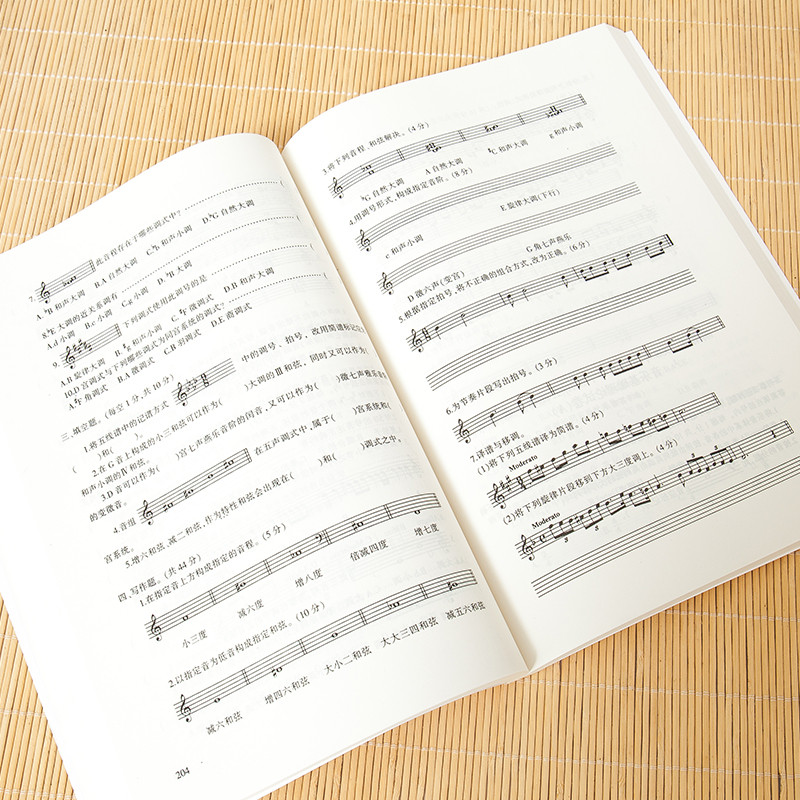 7. 此音程存在于哪些调式中? (
A.♭B和声大调 B.A自然大调 C.♭b和声小调 D.♭G自然大调
8.♭E大调的近关系调有 (
A.d小调 B.c小调 C.g小调 D.♭B大调
9. 下列调式使用此调号的是 (
A.B旋律大调 B.♯g和声小调 C.♯F徵调式 D.B和声大调
10.D宫调式与下列哪些调式为同宫系统的调式? (
A.♯F角调式 B.A徵调式 C.B羽调式 D.E商调式
三、填空题。(每空1分,共10分)
1.将五线谱中的记谱方式 中的调号、拍号,改用简谱标记应为
( )和( )。
2.在G音上构成的小三和弦可以作为( )大调的Ⅲ和弦,同时又可以作为( )
和声小调的Ⅳ和弦。
3.D音可以作为( )宫七声燕乐音阶的闰音,又可以作为( )徵七声雅乐音阶
的变徵音。
4.音组 在五声调式中,属于( )宫系统和( )
宫系统。
5.增六和弦、减一和弦,作为特性和弦会出现在( )和( )调式之中。
四、写作题。(共44分)
1.在指定音上方构成指定的音程。(5分)
小三度 减六度 增八度 倍减四度 增七度
2.以指定音为低音构成指定和弦。(10分)
减六和弦 增四六和弦 大小二和弦 大大三四和弦 减五六和弦
204
3.将下列音程、和弦解决。(4分)
♭G自然大调 A自然大调 ♯C和声大调 g和声小调
4.用调号形式,构成指定音阶。(8分)
c和声小调 E旋律大调(下行)
D徵六声(变宫) G角七声燕乐
5.根据指定拍号,将不正确的组合方式,改为正确。(6分)
6.为节奏片段写出拍号。(3分)
7.译谱与移调。
(1)将下列五线谱译为简谱。(4分)
Moderato
(2)将下列旋律片段移到下方大三度调上。(4分)
Moderato